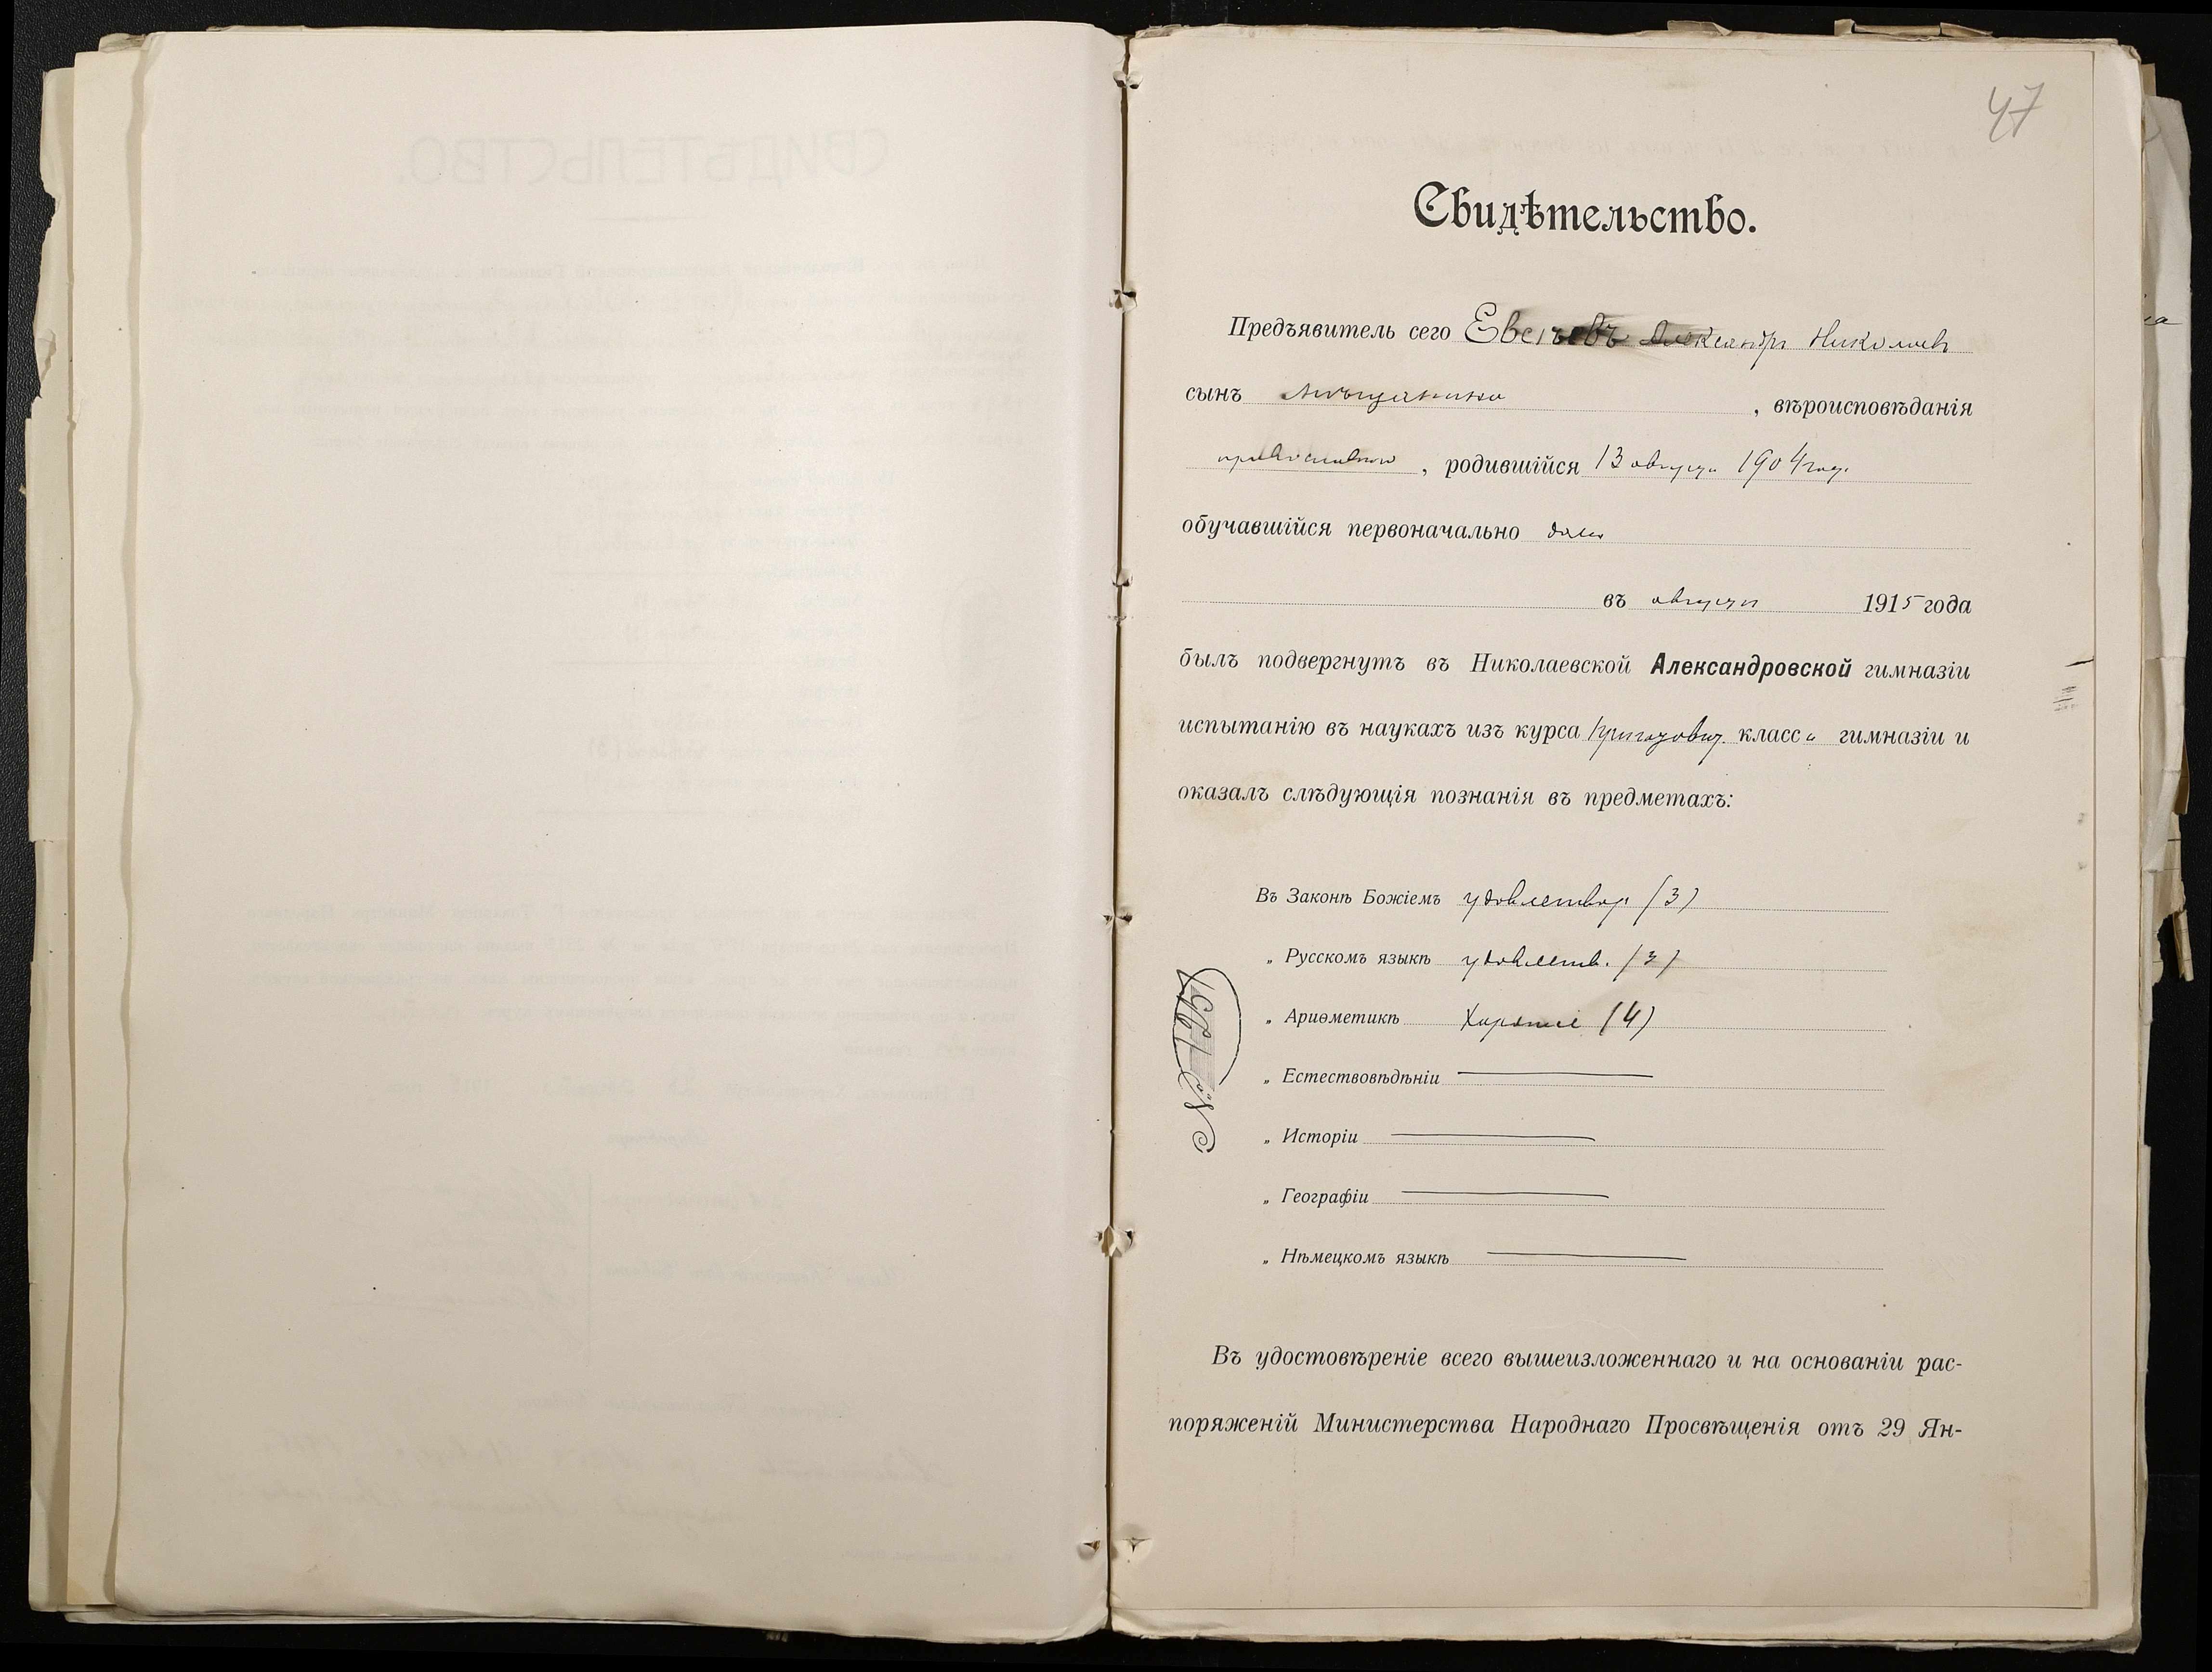 47
Свидѣтельство.
Предъявитель сего Александръ Николаевъ
сынъ мѣщанина, вѣроисповѣданія
православнаго, родившійся 13 августа 1904 года
обучавшійся первоначально дома
въ августѣ 1915 года
былъ подвергнутъ въ Николаевской Александровской гимназіи
испытанію въ наукахъ изъ курса класса гимназіи и
оказалъ слѣдующія познанія въ предметахъ:
Въ Законѣ Божіемъ удовлетвор (3)
„ Русскомъ языкѣ удовлетв. (3)
„ Ариѳметикѣ Хорошіе (4)
„ Естествовѣдѣніи
„ Исторіи
„ Географіи
„ Нѣмецкомъ языкѣ
Въ удостовѣреніе всего вышеизложеннаго и на основаніи рас-
поряженій Министерства Народнаго Просвѣщенія отъ 29 Ян-